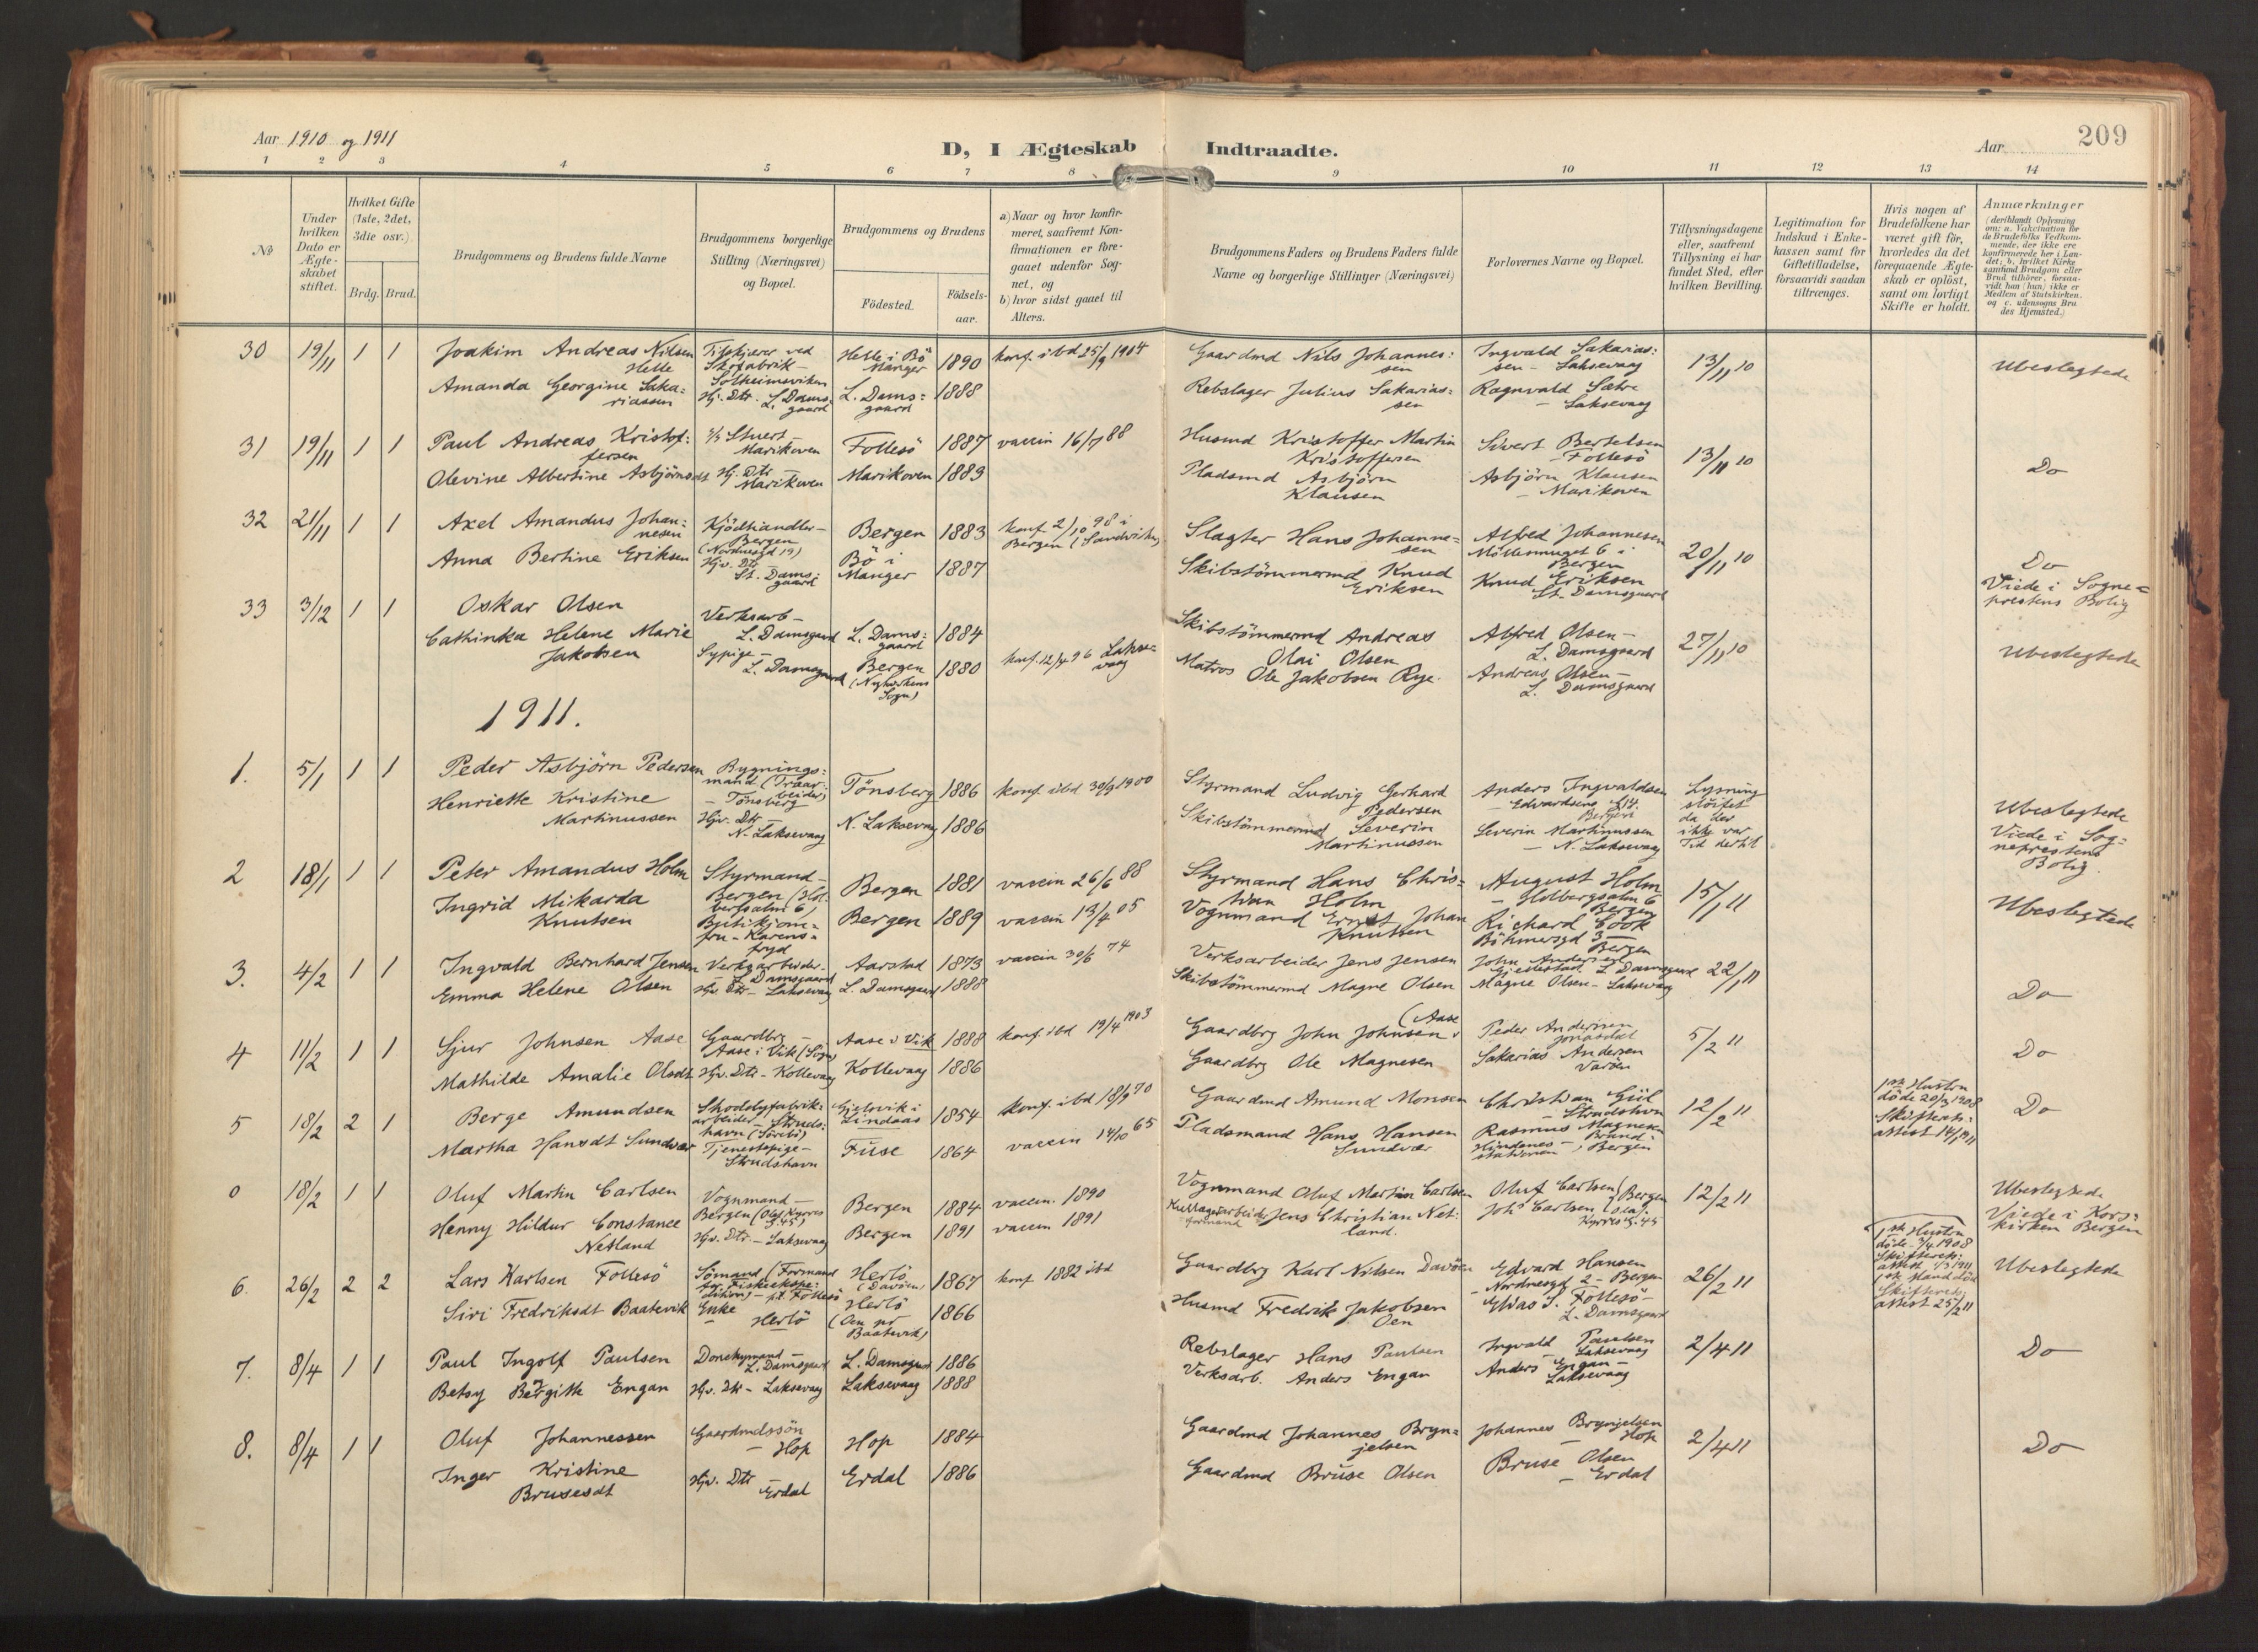 Aar 1910 og 1911
D, I Ægteskab Indtraadte.
Aar
209
1 2 3 4 5 6 7 8 9 10 11 12 13 14
No
Under hvilken Dato er Ægteskabet stiftet.
Hvilket Gifte (1ste, 2det, 3die osv.)
Brdg. Brud.
Brudgommens og Brudens fulde Navne
Brudgommens borgerlige Stilling (Næringsvei) og Bopæl.
Brudgommens og Brudens
Födested.
Födsels-aar.
a) Naar og hvor konfirmeret, saafremt Konfirmationen er foregaaet udenfor Sognet, og
b) hvor sidst gaaet til Alters.
Brudgommens Faders og Brudens Faders fulde Navne og borgerlige Stillinger (Næringsvei)
Forlovernes Navne og Bopæl.
Tillysningsdagene eller, saafremt Tillysning ei har fundet Sted, efter hvilken Bevilling.
Legitimation for Indskud i Enkekassen samt for Giftetilladelse, forsaavidt saadan tiltrænges.
Hvis nogen af Brudefolkene har været gift för, hvorledes da det foregaaende Ægteskab er oplöst, samt om lovligt Skifte er holdt.
Anmærkninger (deriblandt Oplysning om: a. Vakcination for de Brudefolks Vedkommende, der ikke ere konfirmerede her i Landet; b. hvilket Kirkesamfund Brudgom eller Brud tilhörer, forsaavidt han (hun) ikke er Medlem af Statskirken. og c. udensogns Brudes Hjemsted.)
30 19/11 1 1 Joakim Andreas Nilsen Helle
Solheimsviken
Helle i Bö Manger 1890 konf. ibd 25/9 1904
Gaardmd Nils Johannessen
Ingvald Sakariassen - Laksevaag
13/11 10
Ubeslegtede
Amanda Georgine Sakariassen
Hj. Dtr. L. Damsgaard
L. Damsgaard 1888
Rebslager Julius Sakariassen
Ragnvald Sætre - Laksevaag
31 19/11 1 1 Paul Andreas Kristoffersen
Stuert - Marikoven
Follesö 1887 vaccin 16/7 88
Husmd Kristoffer Martin Kristoffersen
Sivert Bertelsen - Follesö
13/11 10
Do
Olevine Albertine Asbjörnsdt
Hj. Dtr - Marikoven
Marikoven 1889
Pladsmd Asbjörn Klausen
Asbjörn Klausen - Marikoven
32 21/11 1 1 Axel Amandus Johannesen
Kjödhandler - Bergen (Nordnesgd 19)
Bergen 1883 konf 2/10 98 i Bergen (Sandviken)
Slagter Hans Johannesen
Alfred Johannesen Bergen
20/11 10
Do
Viede i Sogneprestens Bolig
Anna Bertine Eriksen
Hjv. Dtr - St. Damsgaard
Bö i Manger 1887
Skibstömmermd Knud Eriksen
Knud Eriksen St. Damsgaard
33 3/12 1 1 Oskar Olsen
Verksarb - L. Damsgaard
L. Damsgaard 1884
Skibstömmermd Andreas Olai Olsen
Alfred Olsen - L. Damsgaard
27/11 10
Ubeslegtede
Cathinka Helene Marie Jakobsen
Sypige - L. Damsgaard
Bergen (Nykirkens Sogn) 1880 konf. 12/4 96 Laksevaag
Matros Ole Jakobsen Rye.
Andreas Olsen - L. Damsgaard
1911.
1. 5/1 1 1 Peder Asbjörn Pedersen
Bygningsmand (Træarbeider) - Tönsberg
Tönsberg 1886 konf ibd 30/9 1900
Styrmand Ludvig Gerhard Pedersen
Anders Ingvaldsen Bergen
Lysning slöifet da der ikke var Tid dertil
Ubeslegtede
Viede i Sogneprestens Bolig.
Henriette Kristine Martinussen
Hjv. Dtr - N. Laksevaag
N. Laksevaag 1886
Skibstömmermd Severin Martinussen
Severin Martinussen - N. Laksevaag
2 18/1 1 1 Peter Amandus Holm
Styrmand - Bergen (Holbergsalm 6)
Bergen 1881 vaccin 26/6 88
Styrmand Hans Christian Holm
August Holm - Holbergsalm 6 Bergen
15/1 11
Ubeslegtede
Ingrid Mikarda Knutsen
Butikjomfru - Karensfryd
Bergen 1889 vaccin 13/4 05
Vognmand Ernst Johan Knutsen
Richard Cook Böhmersgd 3 - Bergen
3. 4/2 1 1 Ingvald Bernhard Jensen
Verksarbeider - L. Damsgaard
Aarstad 1873 vaccin 30/6 74
Verksarbeider Jens Jensen
John Andersen L. Damsgaard
22/1 11
Do
Emma Helene Olsen
Hjv. Dtr - Laksevaag
L. Damsgaard 1888
Skibstömmermd Magne Olsen
Magne Olsen - Laksevaag
4 11/2 1 1 Sjur Johnsen Aase
Gaardbrg - Aase i Vik (Sogn)
Aase i Vik 1888 konf ibd 19/4 1903
Gaardbrg John Johnsen (Aase
Peder Andersen
5/2 11
Do
Mathilde Amalie Olsdt
Hjv. Dtr - Kollevaag
Kollevaag 1886
Gaardbrg Ole Magnesen
Sakarias Andersen
5 18/2 2 1 Berge Amundsen
Shoddyfabrikarbeider - Strudshavn
Lindaas 1854 konf. ibd 18/9 70
Gaardmd Amund Monsen
Christian Giil - Strudshvn
12/2 11
1ste Hustru döde 20/3 1908 Skifteretsattest 14/1 1911
Do
Martha Hansdt Sundvær
Tjenestepige - Strudshavn
Fuse 1864 vaccin 14/10 65
Pladsmand Hans Hansen Sundvær
Rasmus Magnesen Bergen
0 18/2 1 1 Oluf Martin Carlsen
Vognmand - Bergen (Olaf Kyrres g. 45)
Bergen 1884 vaccin. 1890
Vognmand Oluf Martin Carlsen
Oluf Carlsen Bergen
12/2 11
Ubeslegtede
Viede i Korskirken Bergen
Henny Hildur Constance Netland
Hjv. Dtr. - Laksevaag
Bergen 1891 vaccin 1891
Jens Christian Netland.
Johs Carlsen (Olaf Kyrres g. 45
6. 26/2 2 2 Lars Karlsen Follesö
Sömand (Formand for Fiskeekspedition) - pt. Follesö
Herlö (Davöen) 1867 konf 1882 ibd
Gaardbrg Karl Nilsen Davöen
Edvard Hansen - Nordnesgd 2 - Bergen
26/2 11
1ste Hustru döde 3/4 1908 Skifteretsattest 1/3 1911
Ubeslegtede
Siri Fredriksdt Baatevik
Enke - Herlö
Herlö (Oen pr Baatevik) 1866
Husmd Fredrik Jakobsen Oen
Elias S. Follesö - L. Damsgaard
Skifteretsattest 25/2 11
7. 8/4 1 1 Paul Ingolf Paulsen
Donkymand - L. Damsgaard
L. Damsgaard 1886
Rebslager Hans Paulsen
Ingvald Paulsen - Laksevaag
2/4 11
Do
Betsy Bergitte Engan
Hjv. Dtr - Laksevaag
Laksevaag 1888
Verksarb. Anders Engan
Anders Engan - Laksevaag
8. 8/4 1 1 Oluf Johannessen
Gaardmdssön - Hop
Hop 1884
Gaardmd Johannes Brynjelsen
Johannes Brynjelsen - Hop
2/4 11
Do
Inger Kristine Brusesdt
Hjv. Dtr - Erdal
Erdal 1886
Gaardmd Bruse Olsen
Bruse Olsen - Erdal